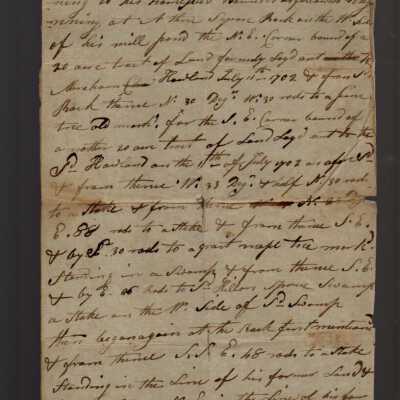 at
of his mill pond the N. E. Corner bound of a
20 acre tract of Land formerly Layd out to
Abraham Howland July 11th 1702 & from Sd
Rock thence No. 30 Dgs. Wt. 30 rods to a pine
tree old markd. for the S. E. Corner bound of
a nother 20 acre tract of Land Layd out to the
Sd. Howland on the 11th of July 1702 as afore Sd.
& from thence Wt. 33 Dgs. & half No. 30 rods
to a Stake & from thence
E. 88 rods to a Stake & from thence S. E.
& by St. 30 rods to a great maple tree markd.
Standing in a Swamp & from thence S. E.
& by E. rods to Spruce Swamp
a Stake on the Wt. Side of Sd. Swamp
then began again at the Rock first mentiond
& from thence S. S. E. 48 rods to a Stake
Standing in the Line of his former Land &
in the Line of his for